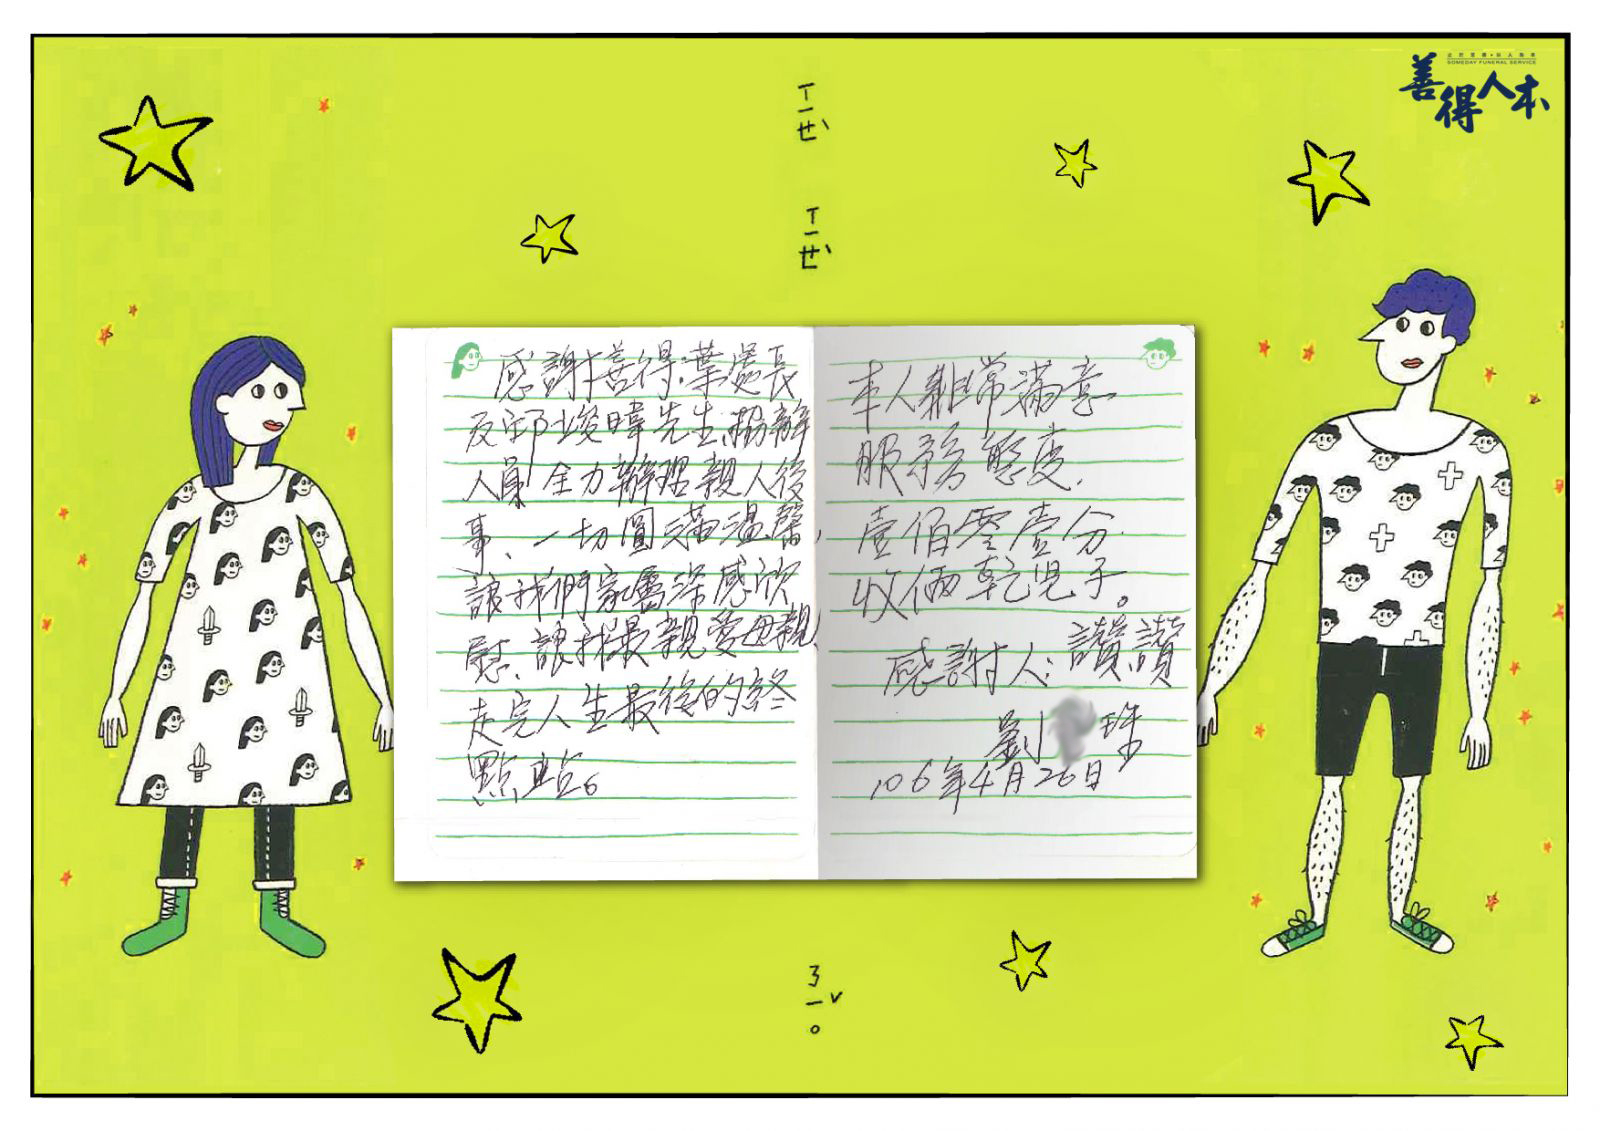 善得人本
SOMEDAY FUNERAL SERVICE
ㄒㄧㄝˋ
ㄒㄧㄝˋ
感謝善得:葉處長
及邱峻暐先生、協辦
人員全力辦理親人後
事、一切圓滿溫馨,
讓我們家屬深感欣
慰、讓我最親愛母親、
走完人生最後的終
點站。
本人非常滿意
服務態度.
壹佰零壹分.
收倆乾兒子。
感謝人:讚讚
劉 珠
106年4月26日
ㄋㄧˇ。